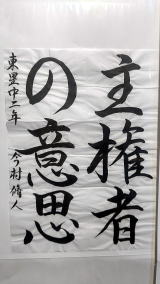 主権者
の意思
東星中二年 今村脩人